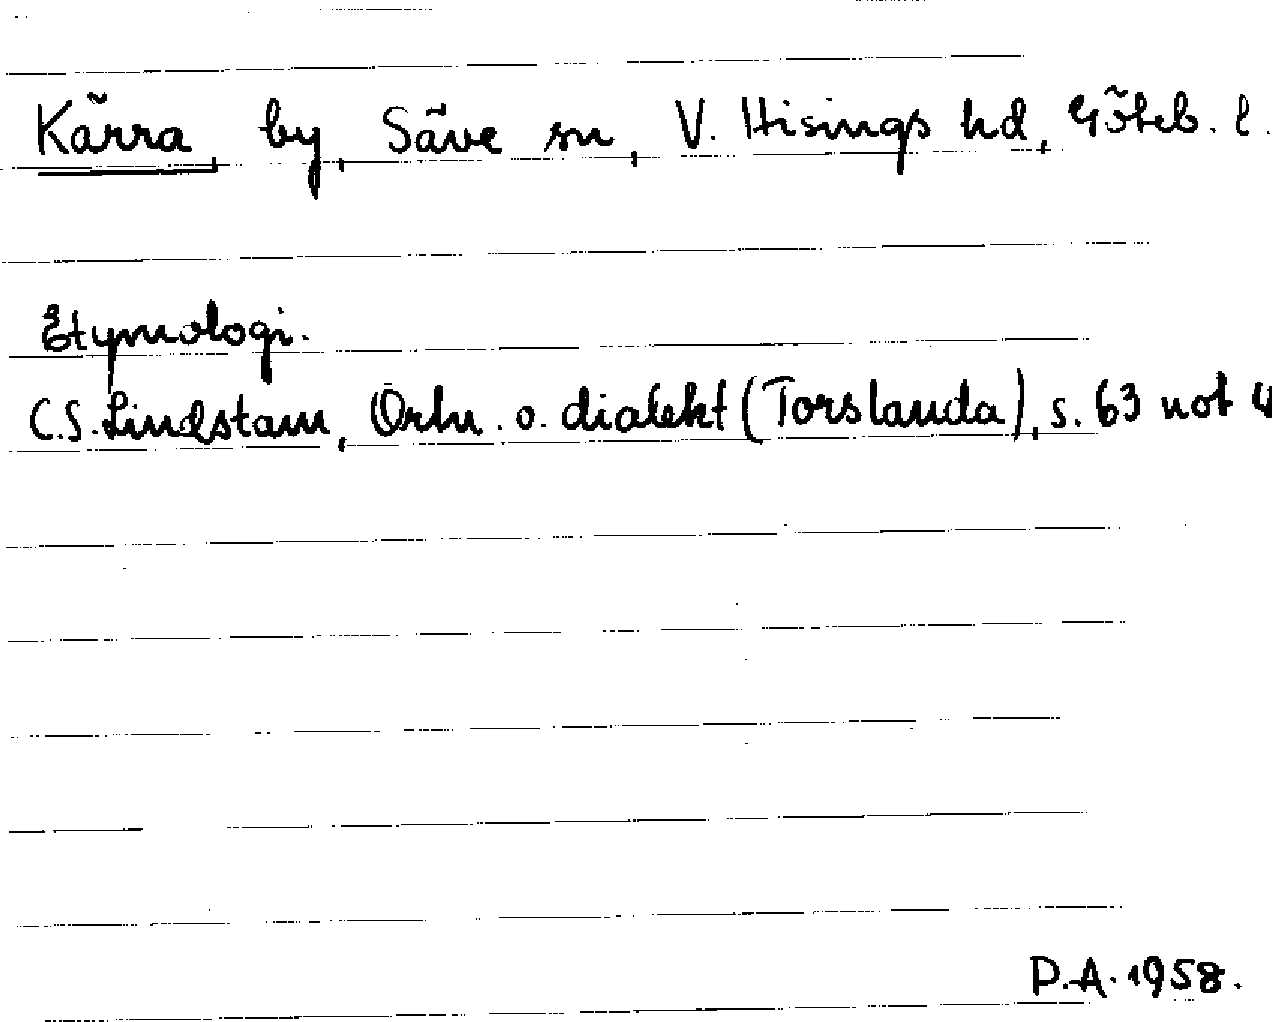 Kärra, by, Säve sn, V. Hisings hd, Göteb. l.
Etymologi.
C.S. Lindstam, Ortn. o. dialekt (Torslanda), s. 63 not 4
P.A. 1958.